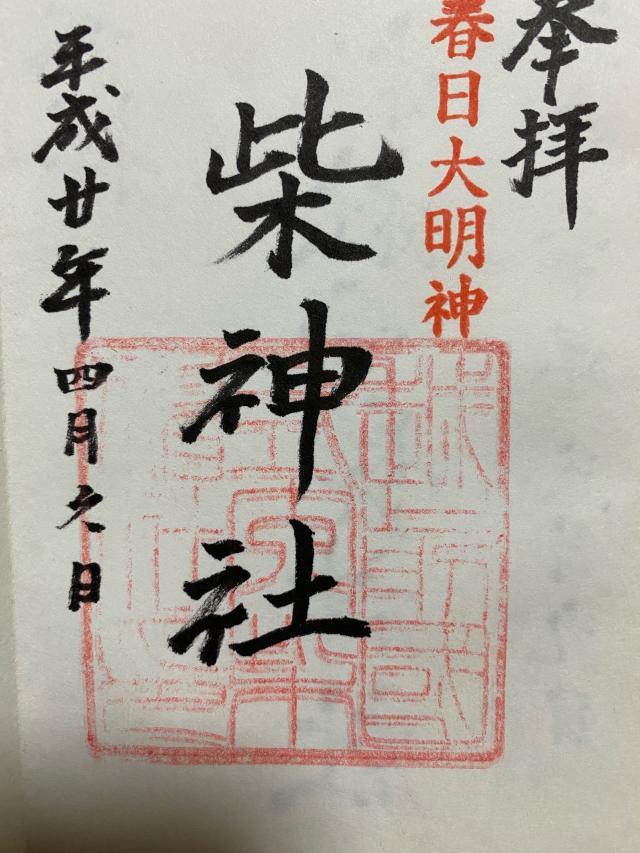 奉拝
春日大明神
柴神社
平成廿年四月之日